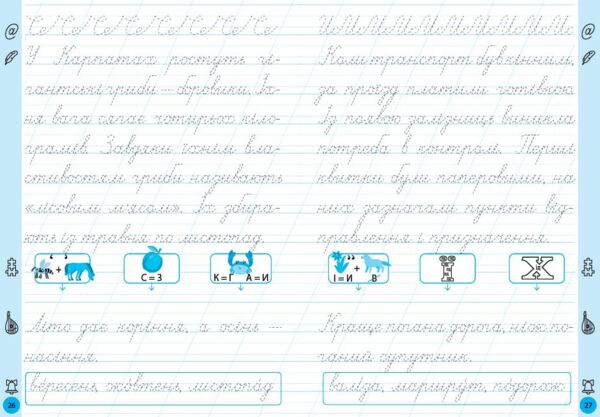 Се Се Се Се Се Се Се Се
У Карпатах ростуть гі-
гантські гриби — боровики. Їх-
ня вага сягає чотирьох кіло-
грамів. Завдяки їхнім вла-
стивостям гриби називають
«лісовим м'ясом». Їх збира-
ють із травня по листопад.
‘ + ‘
С = З
К = Г А = И
Літо дає коріння, а осінь —
насіння.
вересень, жовтень, листопад
26
Коли транспорт був кінним,
за проїзд платили готівкою.
Із появою залізниць виникла
потреба в контролі. Перші
квитки були паперовими, на
них зазначали пункти від-
правлення і призначення.
” +
І = И В
Ї
Х
Краще погана дорога, ніж по-
ганий супутник.
валіза, маршрут, подорож
27